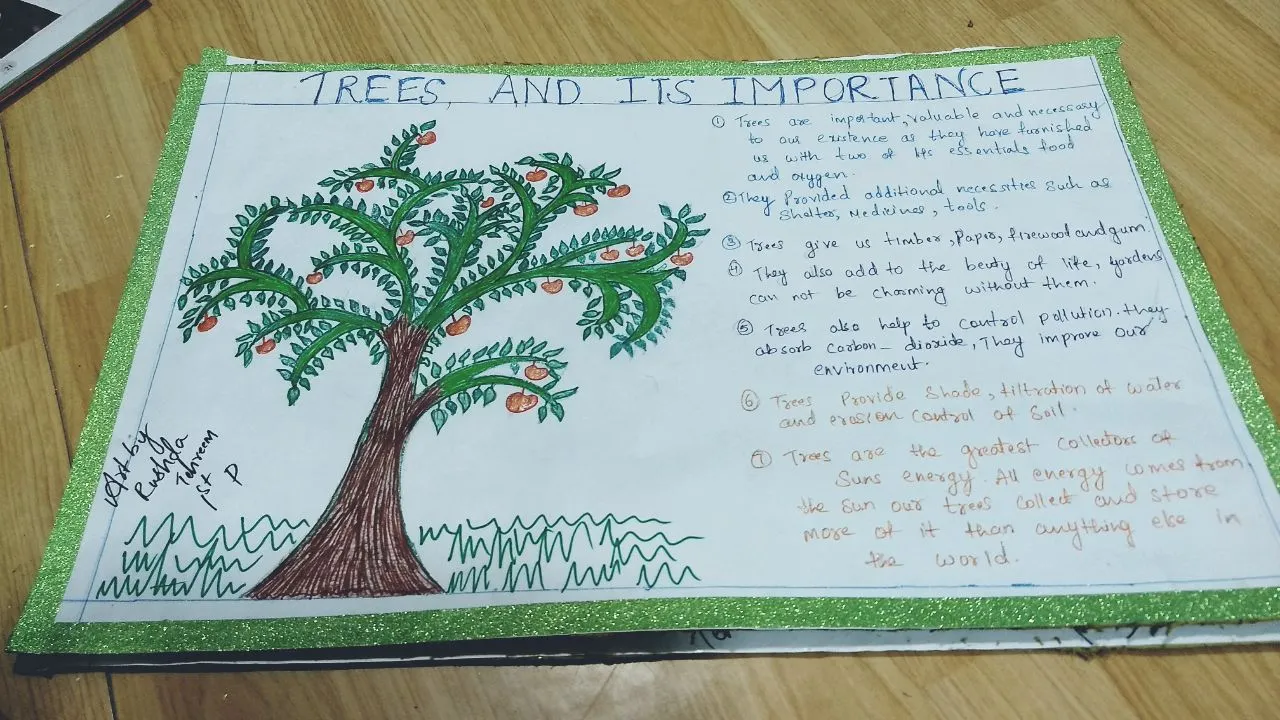 TREES, AND ITS IMPORTANCE
① Trees are important, valuable and necessary
to our existence as they have furnished
us with two of life essentials food
and oxygen.
② They Provided additional necessities such as
Shelter, Medicines, tools.
③ Trees give us timber, Paper, firewood and gum
④ They also add to the beuty of life, gardens
can not be charming without them.
⑤ Trees also help to control pollution. they
absorb carbon - dioxide, They improve our
environment.
⑥ Trees Provide Shade, filtration of water
and erosion control of soil.
⑦ Trees are the greatest collectors of
Suns energy. All energy comes from
the sun our trees collect and store
more of it than anything else in
the world.
Art by
Rushda
Tehreem
1st P